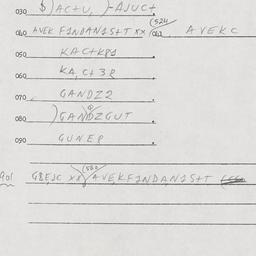 030 $)ACTU, )-AJUCT
040 AVEK F1NDAN1S+T XX (524 061, AVEKC
050 KAC+K81
060 KA, C+38
070 GANDZ2
080 )GANDZGUT
090 GUNE8
901 GBEJC XX (580 AVEKF1NDAN1S+T